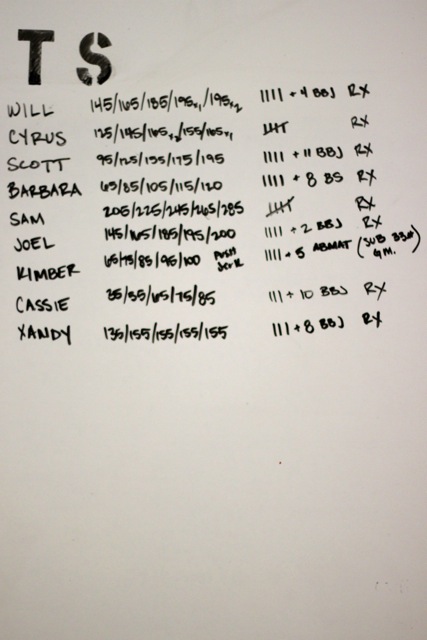 T S
WILL 145/165/185/195x1/195x2 |||| + 4 BBJ RX
CYRUS 125/145/165x2/155/165x1 𝍸 RX
SCOTT 95/125/155/175/195 |||| + 11 BBJ RX
BARBARA 65/85/105/115/120 |||| + 8 BS RX
SAM 205/225/245/265/285 𝍸 RX
JOEL 145/165/185/195/200 |||| + 2 BBJ RX
KIMBER 65/75/85/95/100 PUSH JERK |||| + 5 ABMAT (SUB GM.)
CASSIE 35/55/65/75/85 ||| + 10 BBJ RX
XANDY 135/155/155/155/155 ||| + 8 BBJ RX